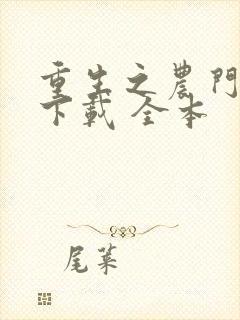 重生之農門
下載 全本
尾葉